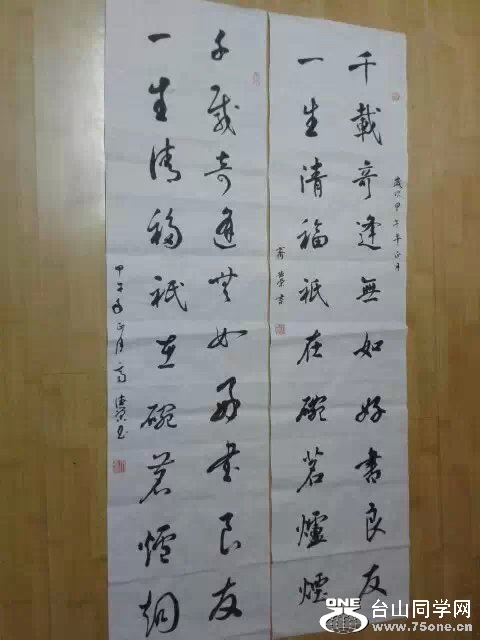 歲次甲午年正月
千載奇逢無如好書良友
一生清福祇在碗茗爐煙
千載奇逢無如好書良友
一生清福祇在碗茗爐烟
甲午年正月
ONE
台山同学网
www.75one.cn